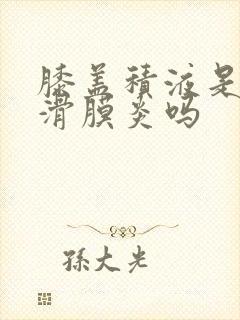 膝盖积液是
滑膜炎吗
孫大光